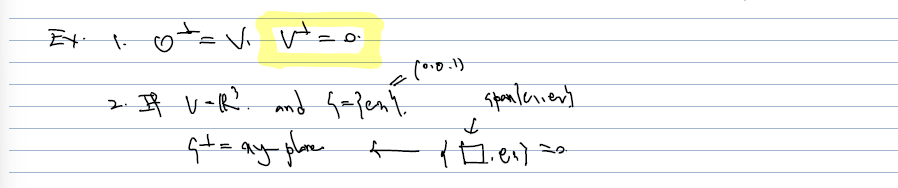 Ex. 1. 0^⊥ = V, V^⊥ = 0.
= (0,0,1)
2. If V=ℝ³. and S={e₃}. span{e₁,e₂}
S^⊥ = xy-plane ← ⟨□, e₃⟩ = 0